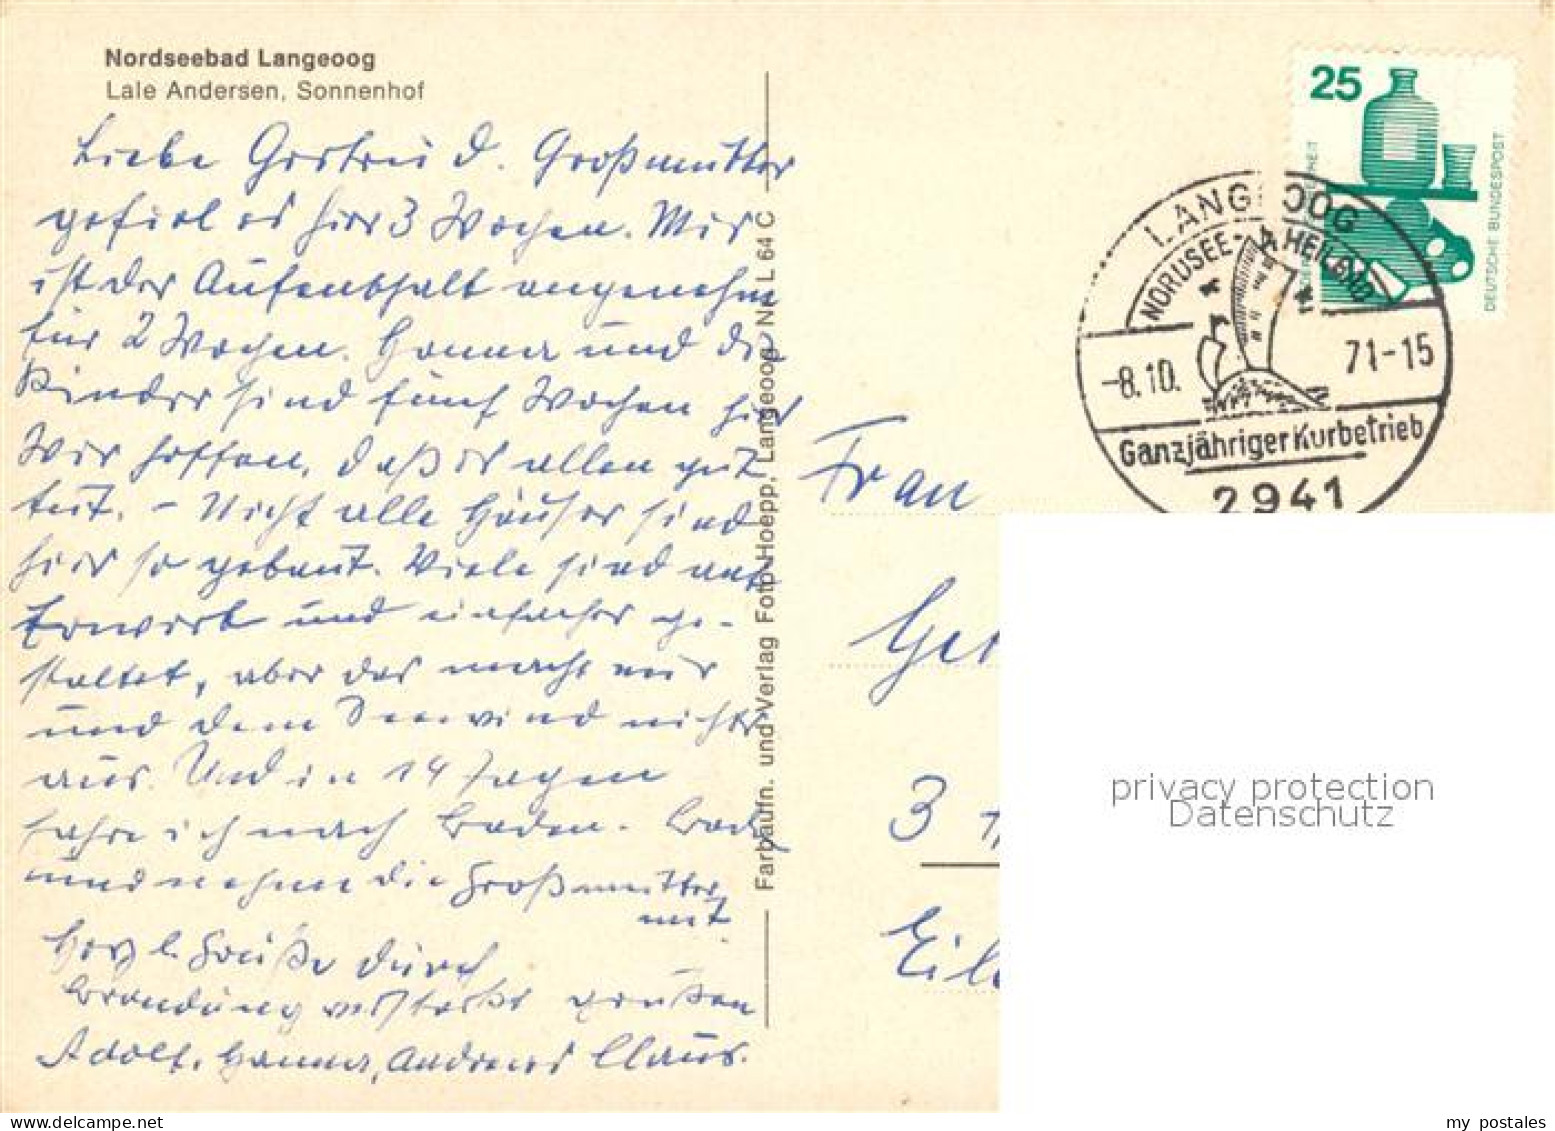 Nordseebad Langeoog
Lale Andersen, Sonnenhof
Liebe Gertrud. Großmutter
gefiel es hier 3 Wochen. Mir
ist der Aufenthalt angenehm
für 2 Wochen. Hanna und die
Kinder sind fünf Wochen hier
Wir hoffen, daß es allen gut
tut. - Nicht alle Häuser sind
hier so gebaut. Viele sind auf
Erwerb und einfacher ge-
staltet, aber das macht mir
und dem Seewind nichts
aus. Und in 14 Tagen
fahre ich nach Baden-Bad
und nehme die Großmutter
mit
Herzl. Grüße durch
Brandung verstärkt grüßen
Adolf, Hanna, Andreas Claus.
Farbaufn. und Verlag Foto-Hoepp, Langeoog Nr. L 64 C
25
DEUTSCHE BUNDESPOST
LANGEOOG
NORDSEE-HEILBAD
-8.10.
71-15
Ganzjähriger Kurbetrieb
2941
Frau
Ger
3
Eil
privacy protection
Datenschutz
my postales